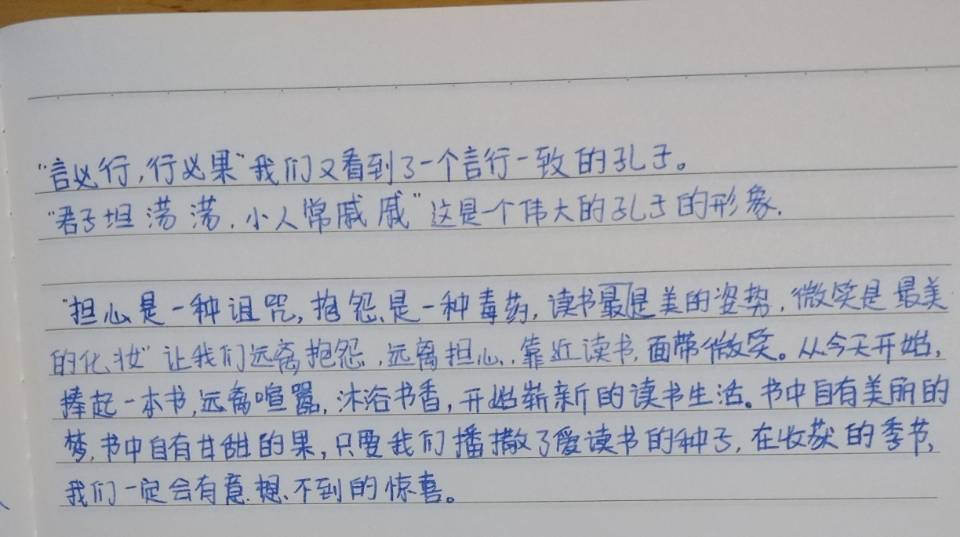 “言必行,行必果”我们又看到了一个言行一致的孔子。
“君子坦荡荡,小人常戚戚”这是一个伟大的孔子的形象.
“担心是一种诅咒,抱怨是一种毒药,读书最是美的姿势,微笑是最美
的化妆”让我们远离抱怨,远离担心,靠近读书,面带微笑。从今天开始,
捧起一本书,远离喧嚣,沐浴书香,开始崭新的读书生活。书中自有美丽的
梦,书中自有甘甜的果,只要我们播撒了爱读书的种子,在收获的季节,
我们一定会有意想不到的惊喜。